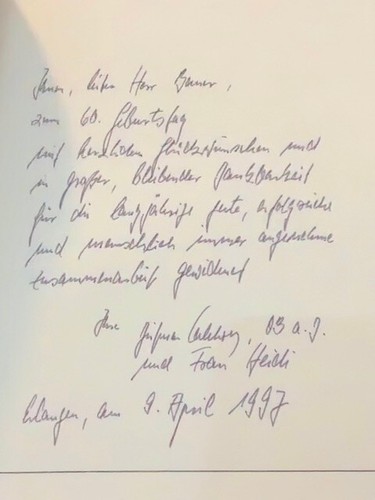 Ihnen, lieber Herr
zum 60. Geburtstag
mit herzlichen Glückwünschen und
in großer, bleibender Dankbarkeit
für die langjährige, gute, erfolgreiche
und menschlich immer angenehme
Zusammenarbeit gewidmet
Ihre OB a.D.
und Frau Heidi
Erlangen, am 9. April 1997